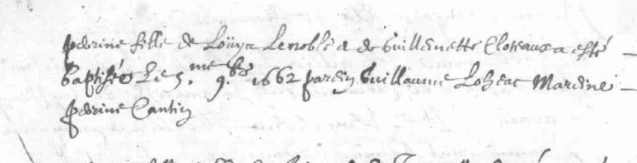 perrine fille de Loüys Lenoble & de Guillemette Cloteaux a esté
baptisée le 5.me 9.bre 1662 parein Guillaume Loheac Mareine
perrine Cantin